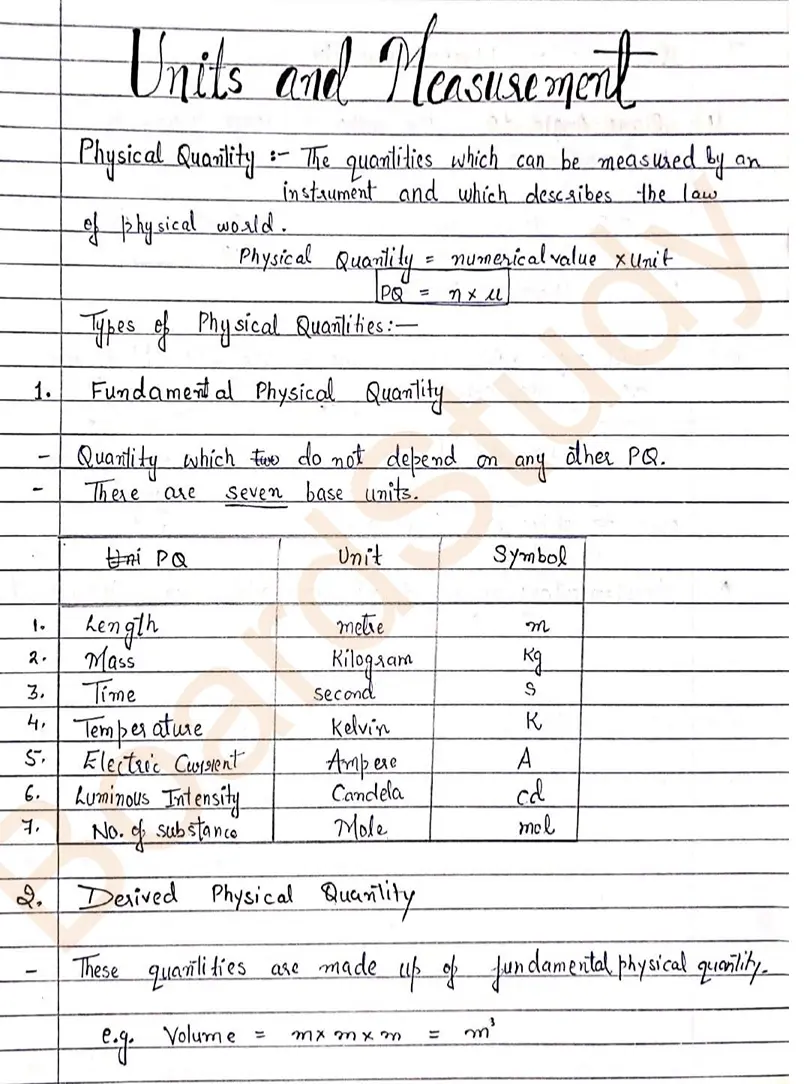 Units and Measurement
Physical Quantity :- The quantities which can be measured by an
instrument and which describes the law
of physical world.
Physical Quantity = numerical value × Unit
PQ = n × u
Types of Physical Quantities:—
1. Fundamental Physical Quantity
- Quantity which two do not depend on any other PQ.
- There are seven base units.
Uni PQ Unit Symbol
1. Length metre m
2. Mass Kilogram Kg
3. Time second s
4. Temperature Kelvin K
5. Electric Current Ampere A
6. Luminous Intensity Candela cd
7. No. of substance Mole mol
2. Derived Physical Quantity
- These quantities are made up of fundamental physical quantity.
e.g. Volume = m × m × m = m³
BoardStudy